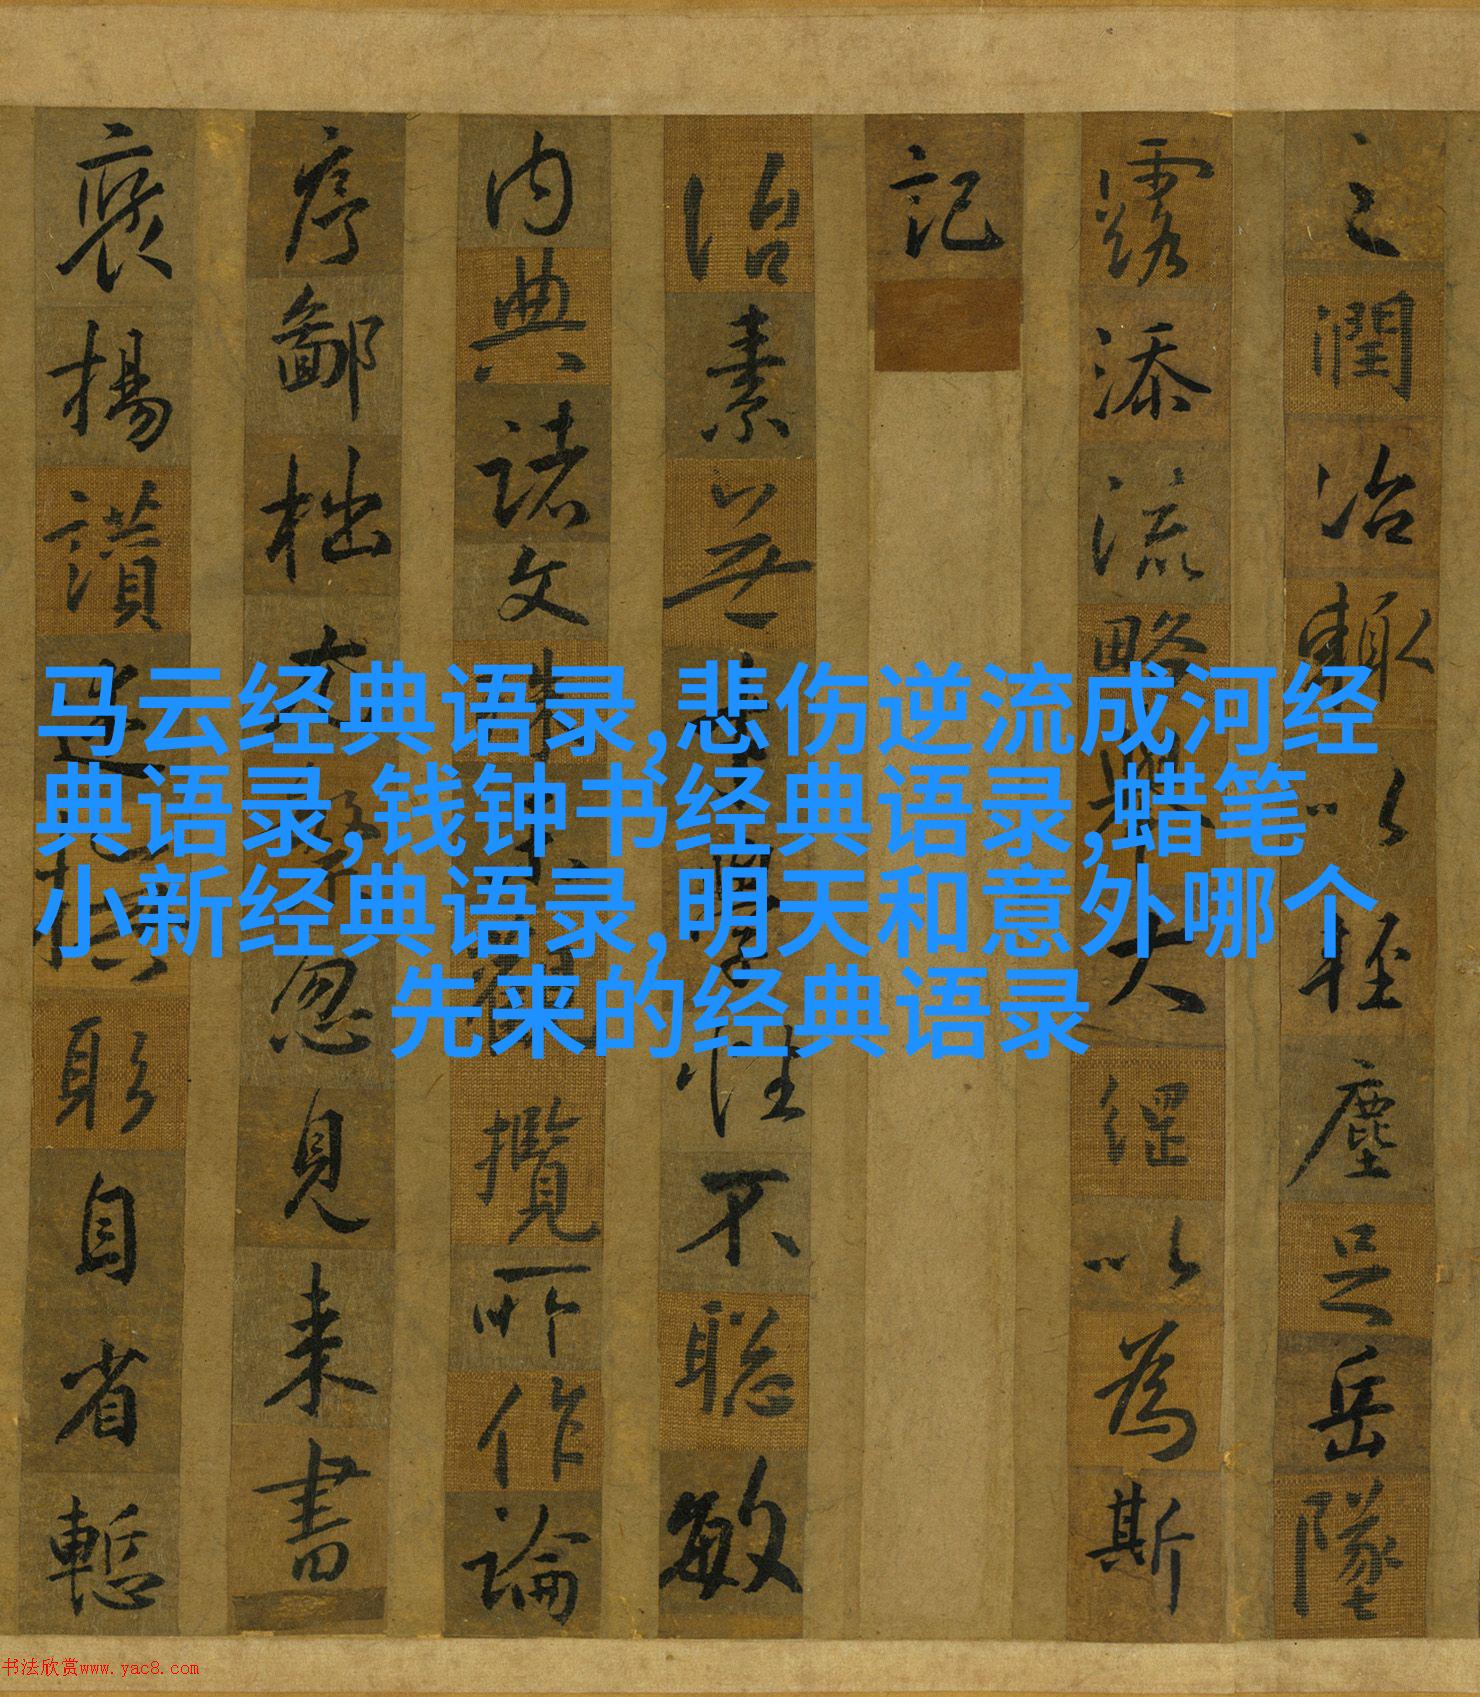 之潤冶輙以輕塵足岳墜
露添流略舉大綱以為斯
記
治素無才學性不聰敏
内典諸文殊未觀攬所作論
序鄙拙尤繁忽見来書
褒揚讃述撫躬自省慙
马云经典语录,悲伤逆流成河经
典语录,钱钟书经典语录,蜡笔
小新经典语录,明天和意外哪个
先来的经典语录
书法欣赏www.yac8.com